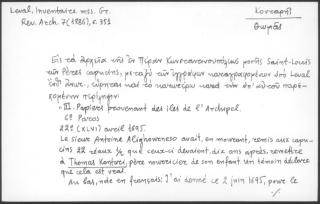 Laval, Inventaires mss. Gr.
Κονταρῆς
Rev. Arch. 7 (1886), σ. 352
Θωμᾶς
Εἰς τὰ ἀρχεῖα τῆς ἐν Πέραν Κωνσταντινουπόλεως μονῆς Saint-Louis
τῶν Pères capucins, μεταξὺ τῶν ἐγγράφων καταγραφομένων ὑπὸ Laval
καὶ τὸ κατωτέρω κατὰ τὴν ὑπ' αὐτοῦ παρε-
χομένην περίληψιν:
« III. Papiers provenant des îles de l'Archipel.
6º Paros
22º (XLVI) avril 1695.
Le sieur Antoine Alighoweneso avait, en mourant, remis aux capu-
cins 22 réaux ½ que ceux-ci devaient, dix ans après, remettre
à Thomas Kontari, père nourricier de son enfant. Un témoin déclare
que cela est vrai.
Au bas, note en français: J'ai donné ce 2 juin 1695, pour le
./.